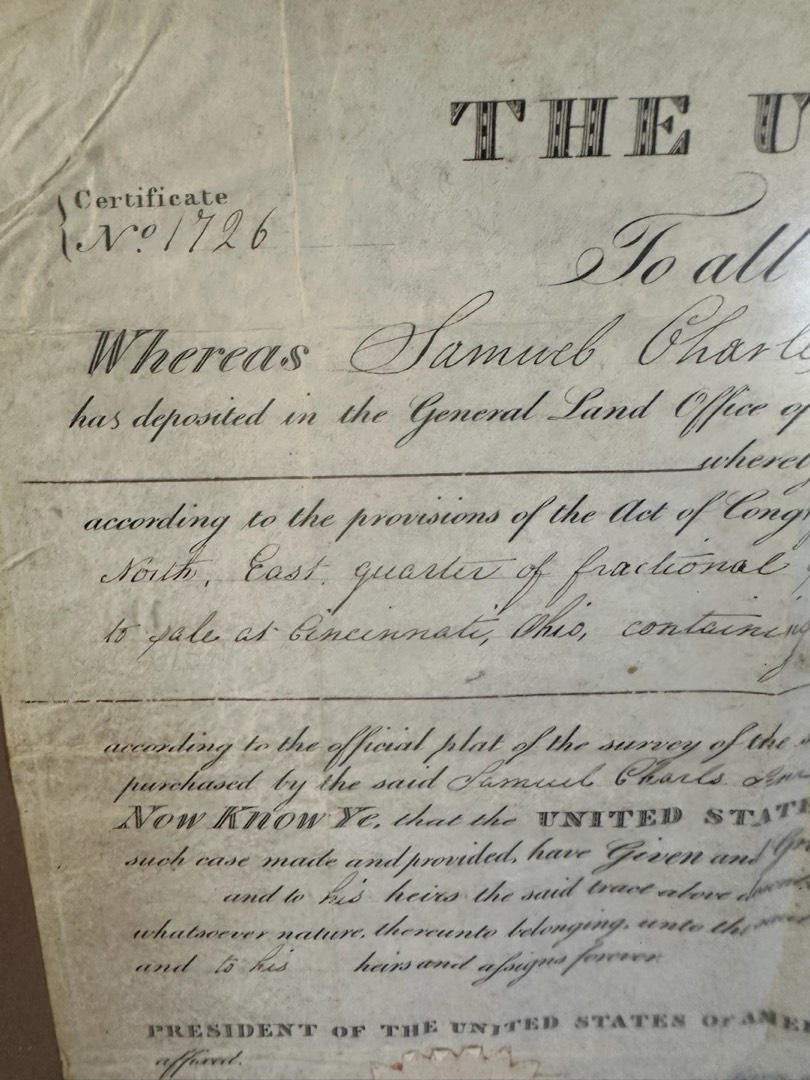 THE U
Certificate
No. 1726
To all
Whereas Samuel Charle
has deposited in the General Land Office of
whereb
according to the provisions of the Act of Cong
North, East quarter of fractional
to sale at Cincinnati, Ohio, containing
according to the official plat of the survey of the
purchased by the said Samuel Charls
Now Know Ye, that the UNITED STATE
such case made and provided, have Given and Gr
and to his heirs the said tract above
whatsoever nature, thereunto belonging, unto the
and to his heirs and assigns forever
PRESIDENT OF THE UNITED STATES OF AMER
affixed.